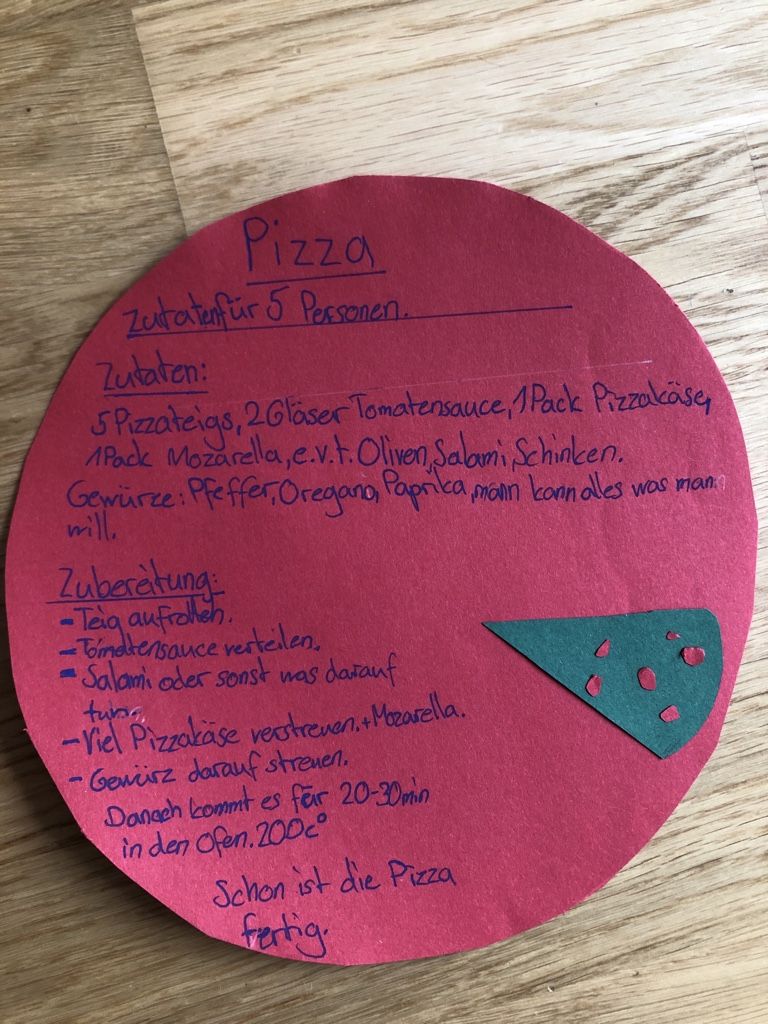 Pizza
Zutaten für 5 Personen.
Zutaten:
5 Pizzateigs, 2 Gläser Tomatensauce, 1 Pack Pizzakäse,
1 Pack Mozarella, e.v.t. Oliven, Salami, Schinken.
Gewürze: Pfeffer, Oregano, Paprika, mann kann alles was man
will.
Zubereitung:
- Teig aufrollen.
- Tomatensauce verteilen.
- Salami oder sonst was darauf
tun.
- Viel Pizzakäse verstreuen. + Mozarella.
- Gewürz darauf streuen.
Danach kommt es für 20-30min
in den Ofen. 200c°
Schon ist die Pizza
fertig.